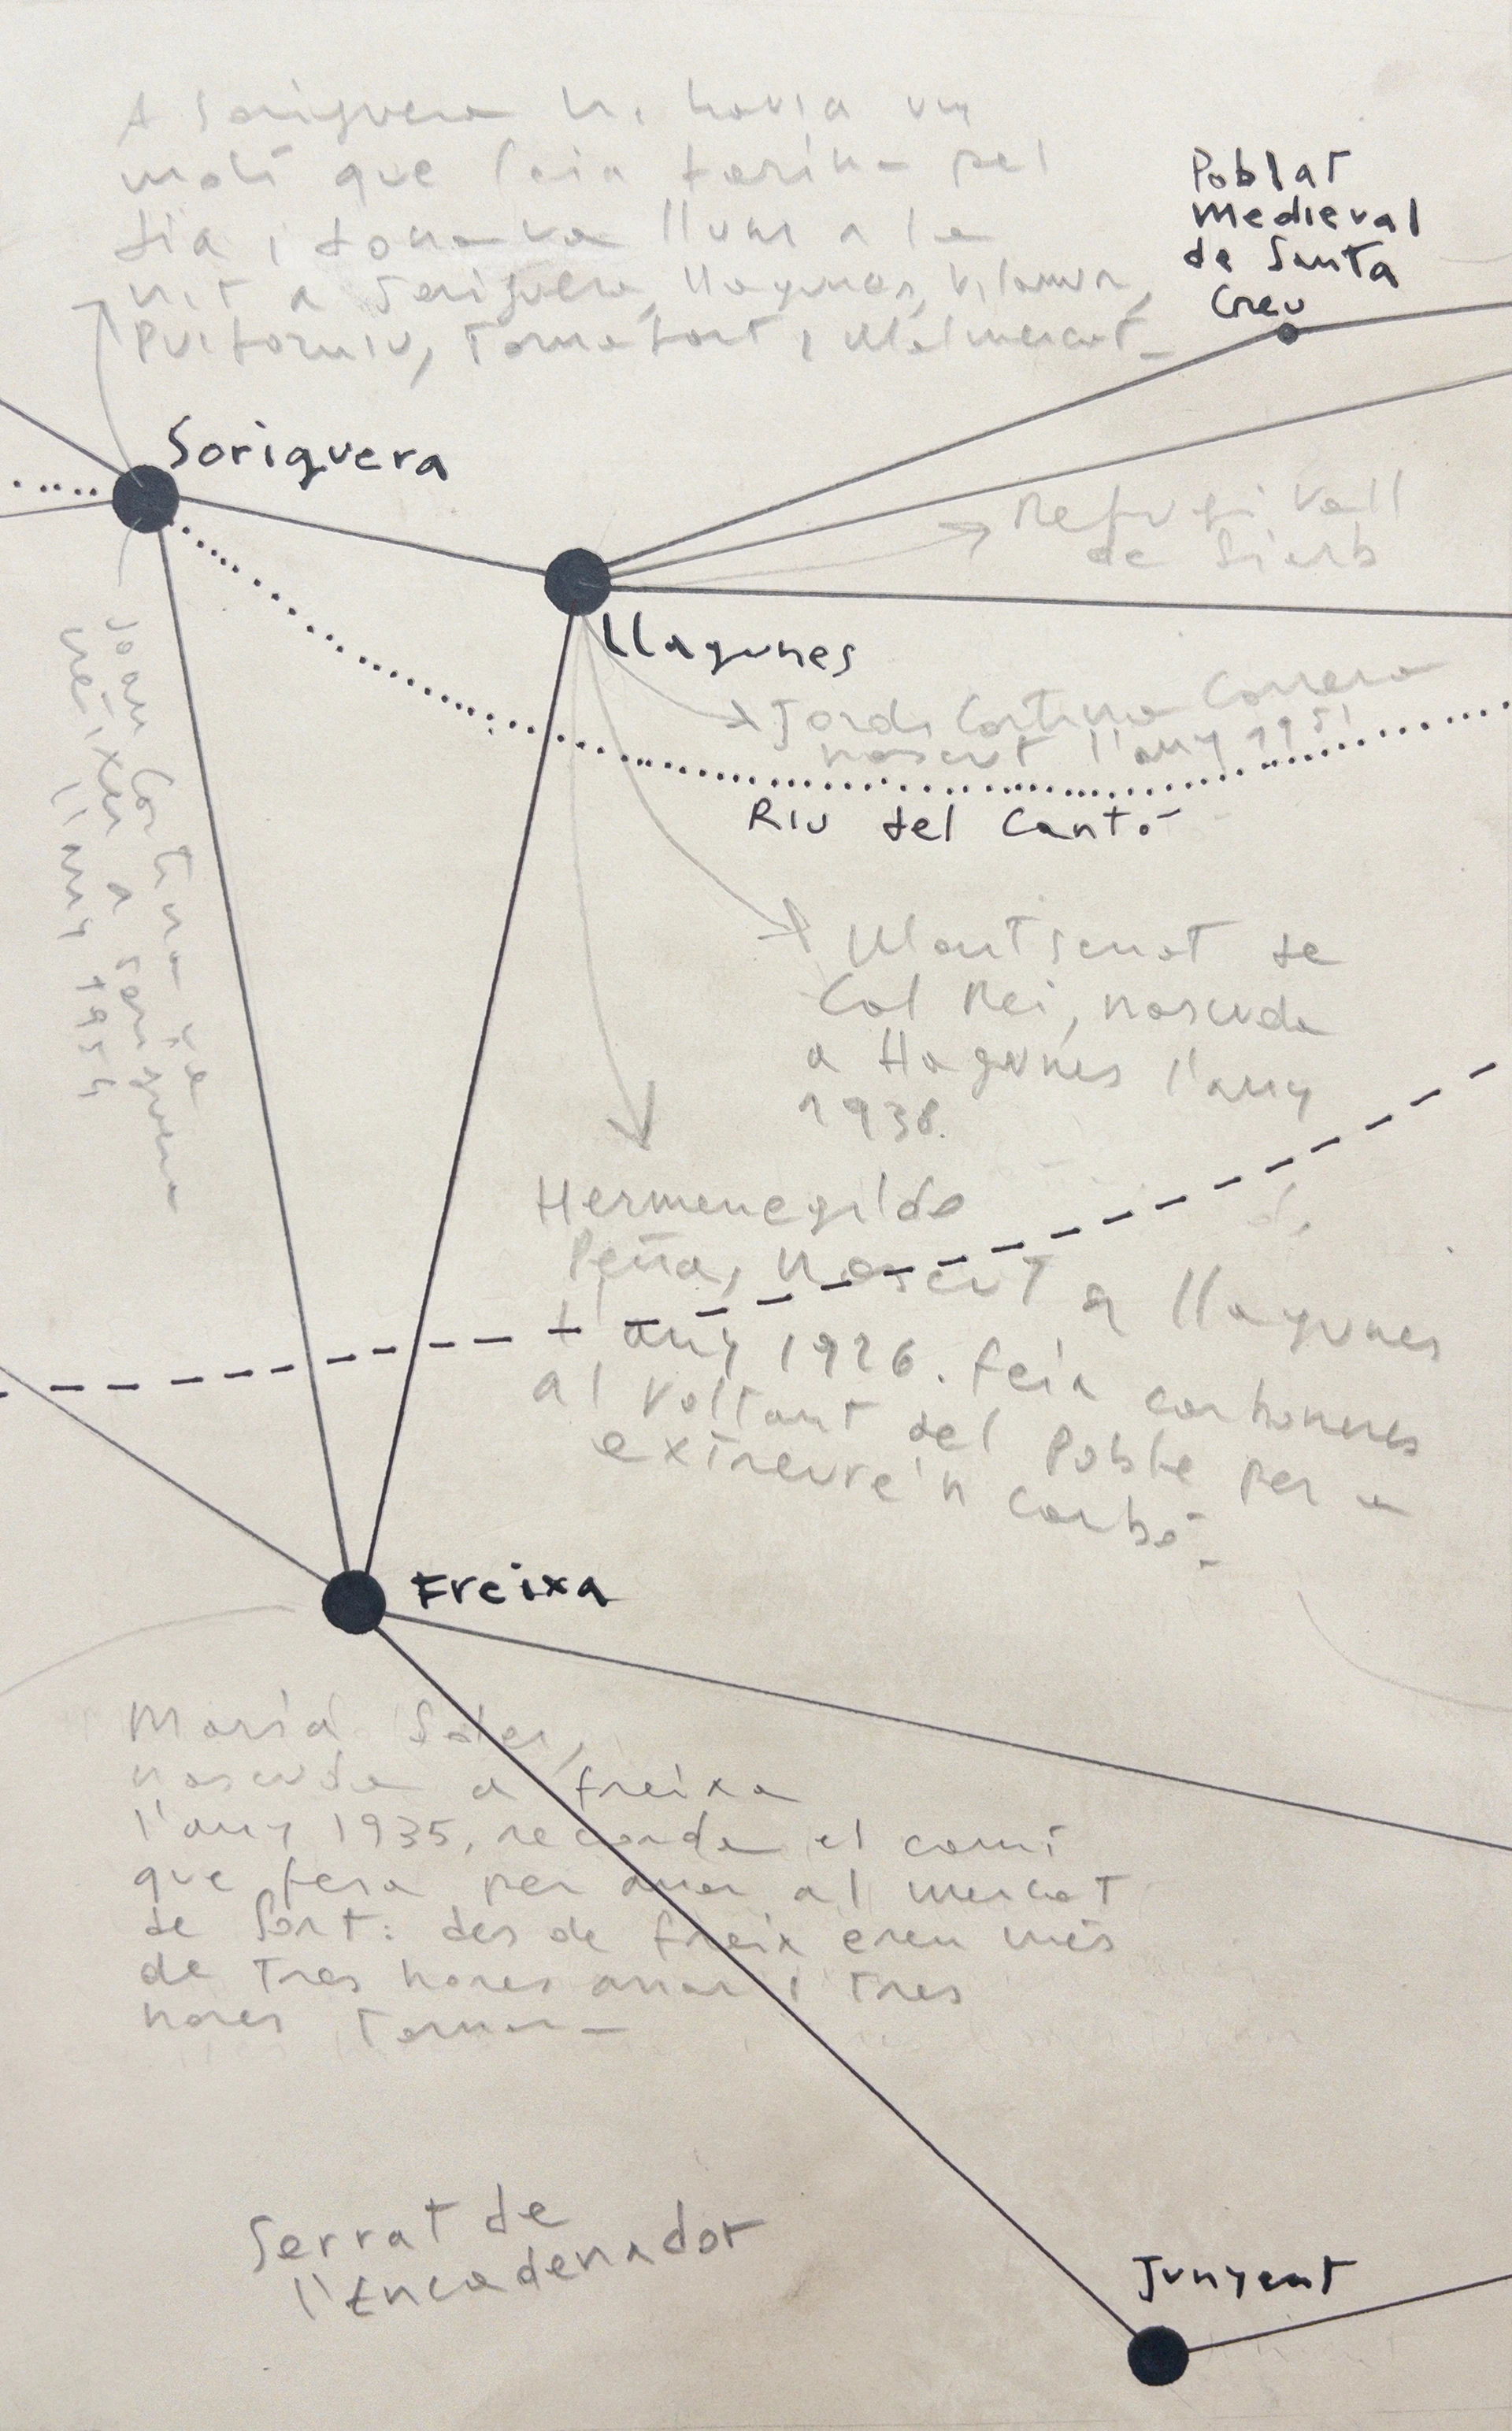 A Soriguera hi havia un
molí que feia farina pel
dia i donava llum a la
nit a Soriguera, Llagunes, Vilamur,
Puiforniu, Tornafort i Malmercat
Poblat
Medieval
de Santa
Creu
Soriguera
Refugi Vall
de Siarb
Llagunes
Jordi Cortina Carrera
nascut l'any 1951
Riu del Cantó
Joan Cortina de
a Soriguera
l'any
Montserrat de
Cal Rei, nascuda
a Llagunes l'any
1938.
Hermenegildo
Peña, nascut a Llagunes
l'any 1926. Feia carboneres
al voltant del Poble per a
extreure'n carbó
Freixa
Maria Soler,
nascuda a Freixa
l'any 1935, recorda el camí
que feia per anar al mercat
de Sort: des de Freix eren més
de tres hores anar i tres
hores tornar
Serrat de
l'Encadenador
Junyent